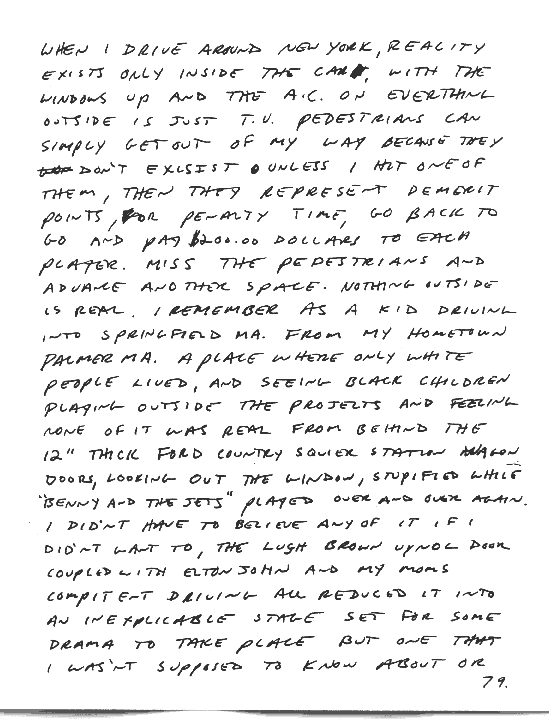 WHEN I DRIVE AROUND NEW YORK, REALITY
EXISTS ONLY INSIDE THE CAR, WITH THE
WINDOWS UP AND THE A.C. ON EVERTHING
OUTSIDE IS JUST T.V. PEDESTRIANS CAN
SIMPLY GET OUT OF MY WAY BECAUSE THEY
DON'T EXCSIST UNLESS I HIT ONE OF
THEM, THEN THEY REPRESENT DEMERIT
POINTS, OR PENALTY TIME, GO BACK TO
GO AND PAY $200.00 DOLLARS TO EACH
PLAYER. MISS THE PEDESTRIANS AND
ADVANCE ANOTHER SPACE. NOTHING OUTSIDE
IS REAL. I REMEMBER AS A KID DRIVING
INTO SPRINGFIELD MA. FROM MY HOMETOWN
PALMER MA. A PLACE WHERE ONLY WHITE
PEOPLE LIVED, AND SEEING BLACK CHILDREN
PLAYING OUTSIDE THE PROJECTS AND FEELING
NONE OF IT WAS REAL FROM BEHIND THE
12" THICK FORD COUNTRY SQUIER STATION WAGON
DOORS, LOOKING OUT THE WINDOW, STUPIFIED WHILE
"BENNY AND THE JETS" PLAYED OVER AND OVER AGAIN.
I DID'NT HAVE TO BELIEVE ANY OF IT IF I
DID'NT WANT TO, THE BROWN DOOR
COUPLED WITH ELTON JOHN AND MY MOMS
COMPITENT DRIVING ALL REDUCED IT INTO
AN INEXPLICABLE STAGE SET FOR SOME
DRAMA TO TAKE PLACE BUT ONE THAT
I WAS'NT SUPPOSED TO KNOW ABOUT OR
79.